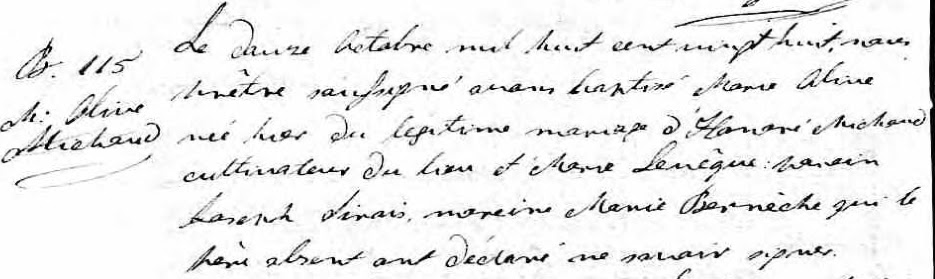 B. 115
M. Olive
Michaud
Le douze Octobre mil huit cent vingt huit, nous
Prêtre soussigné avons baptisé Marie Olive
née hier du légitime mariage d'Honoré Michaud
cultivateur du lieu et Marie Levêque: parain
Joseph Sirois, mareine Marie Bernèche qui le
père absent ont déclaré ne savoir signer.